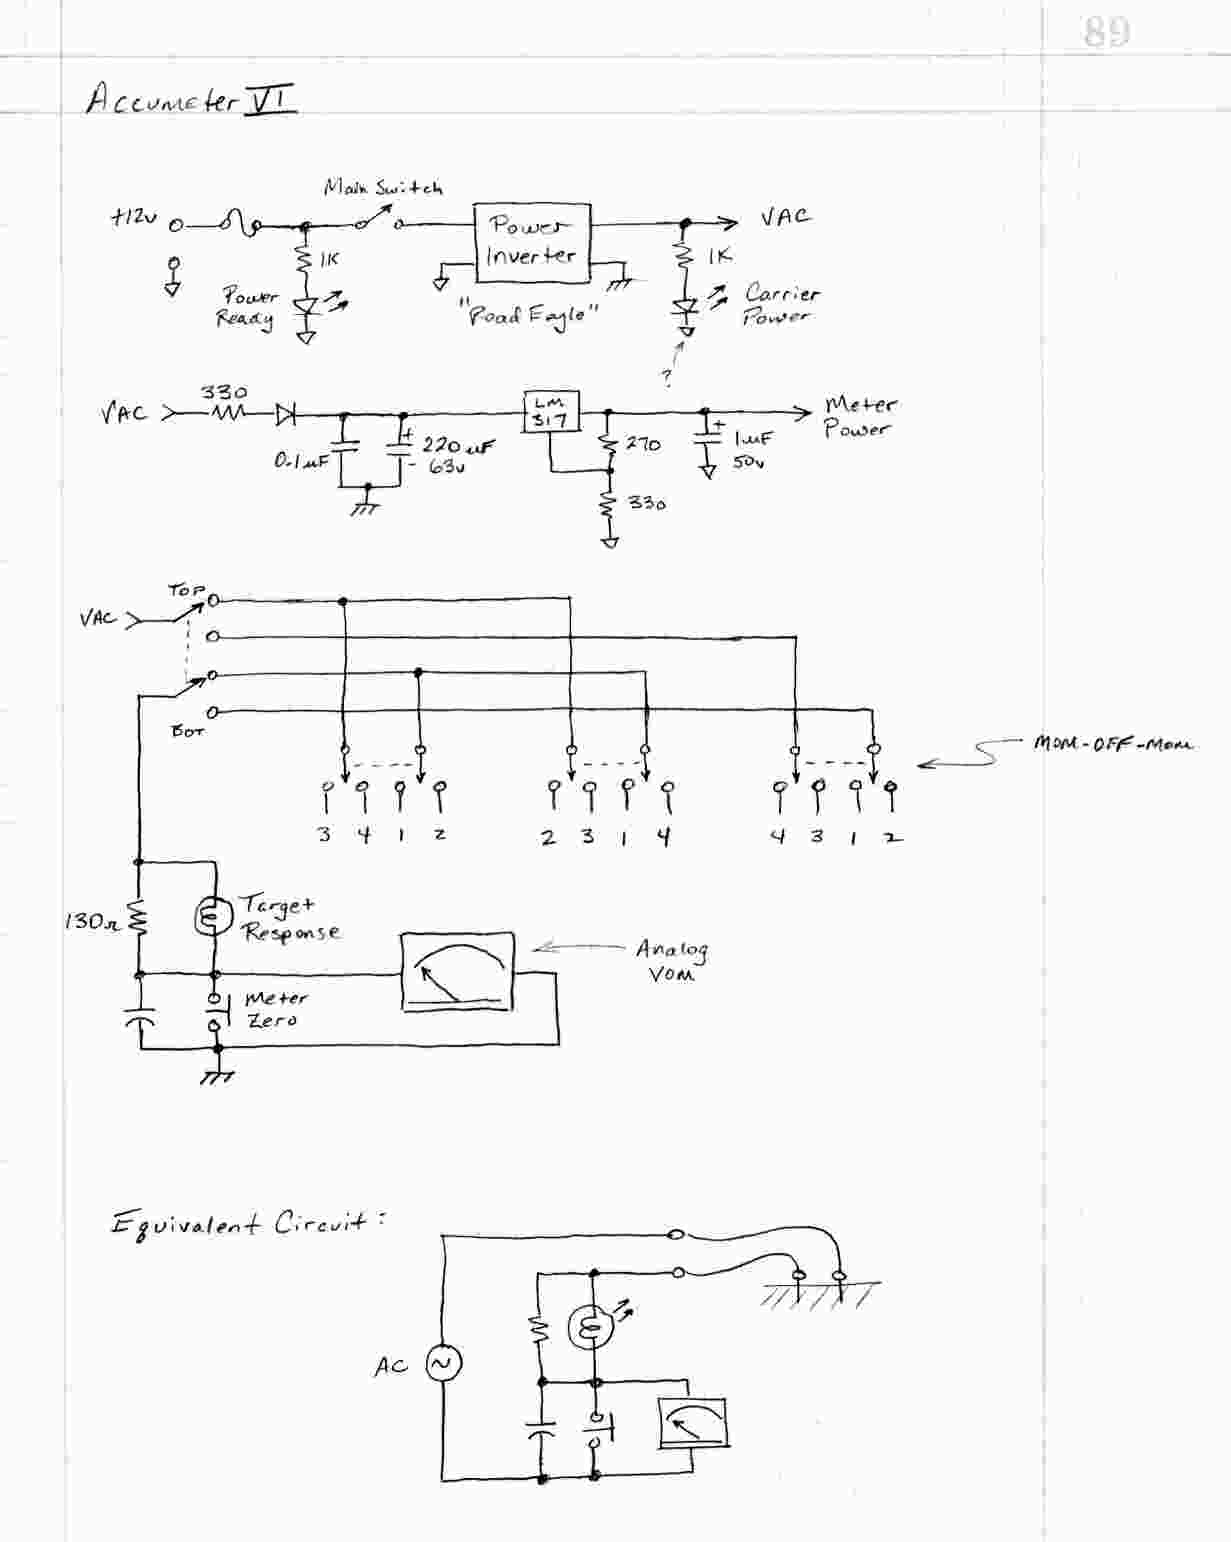 89
Accumeter VI
Main Switch
+12v
Power
Inverter
VAC
1K
1K
Power
Ready
"Road Eagle"
Carrier
Power
?
VAC
330
LM
317
Meter
Power
0.1uF
+
220uF
- 63v
270
+
1uF
50v
330
TOP
VAC
BOT
MOM-OFF-MOM
3 4 1 2
2 3 1 4
4 3 1 2
130Ω
Target
Response
Analog
VOM
Meter
Zero
Equivalent Circuit:
AC